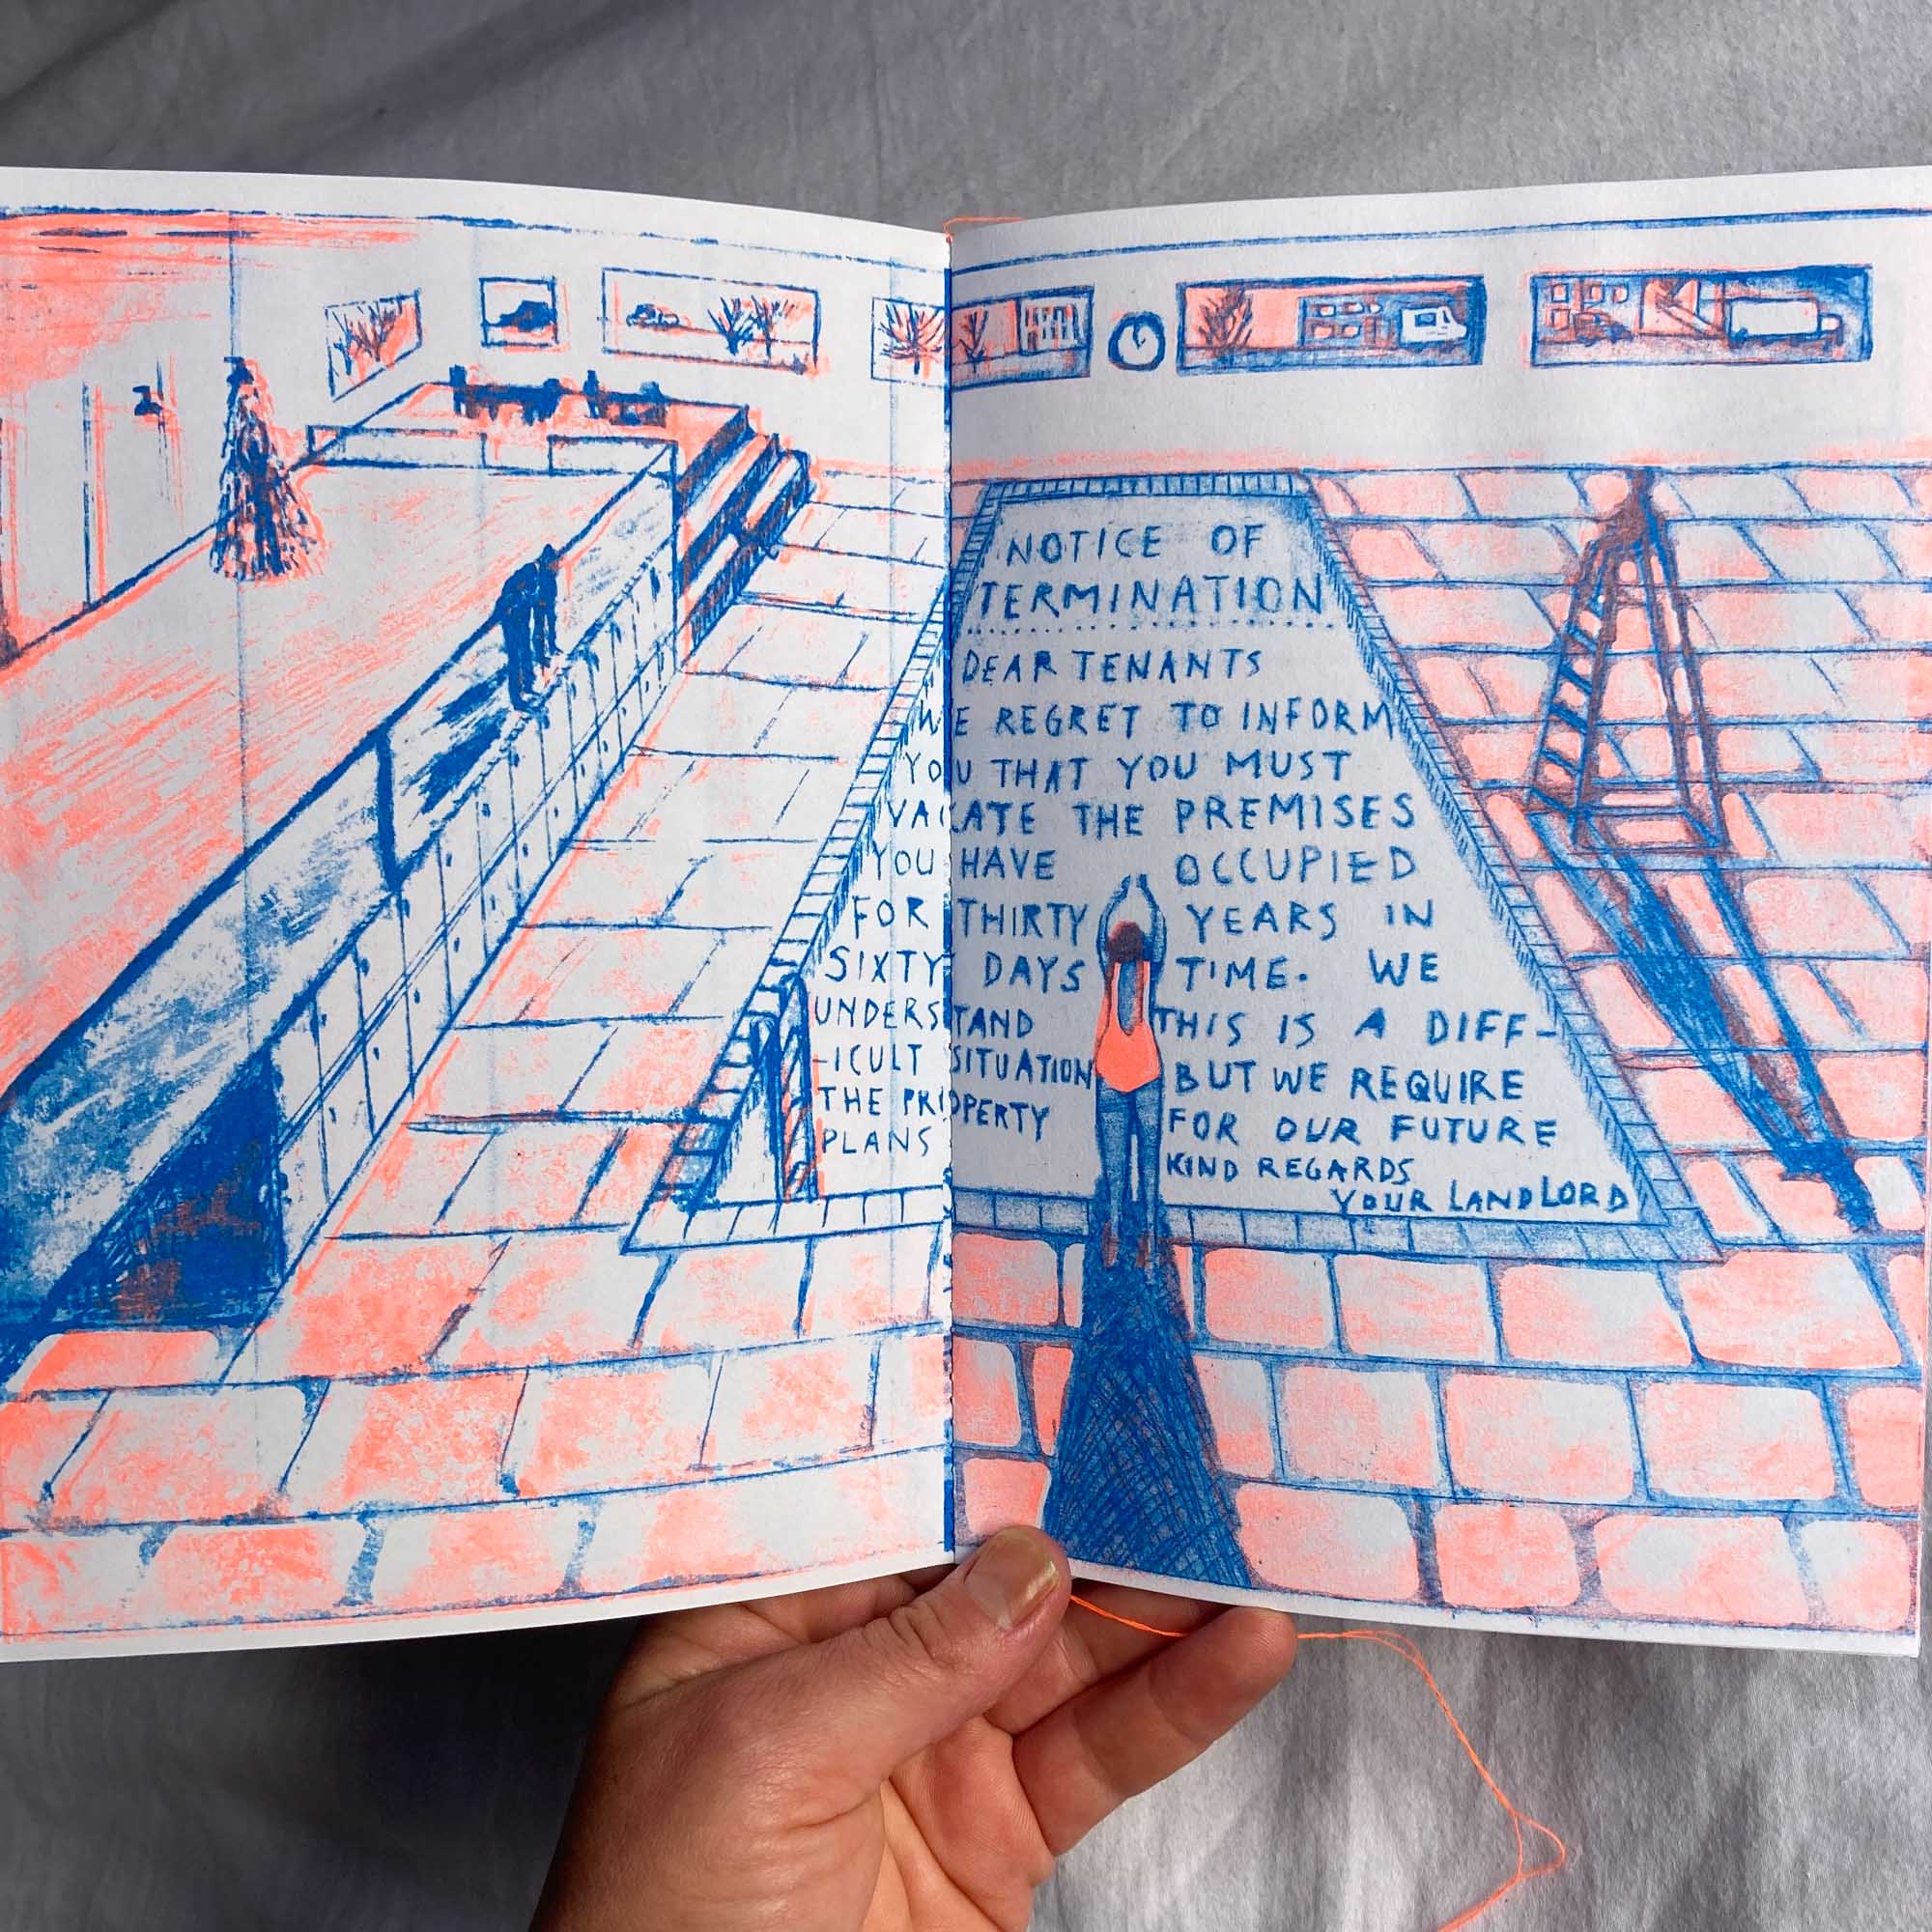 NOTICE OF
TERMINATION
DEAR TENANTS
WE REGRET TO INFORM
YOU THAT YOU MUST
VACATE THE PREMISES
YOU HAVE OCCUPIED
FOR THIRTY YEARS IN
SIXTY DAYS TIME. WE
UNDERSTAND THIS IS A DIFF-
-ICULT SITUATION BUT WE REQUIRE
THE PROPERTY FOR OUR FUTURE
PLANS KIND REGARDS
YOUR LANDLORD